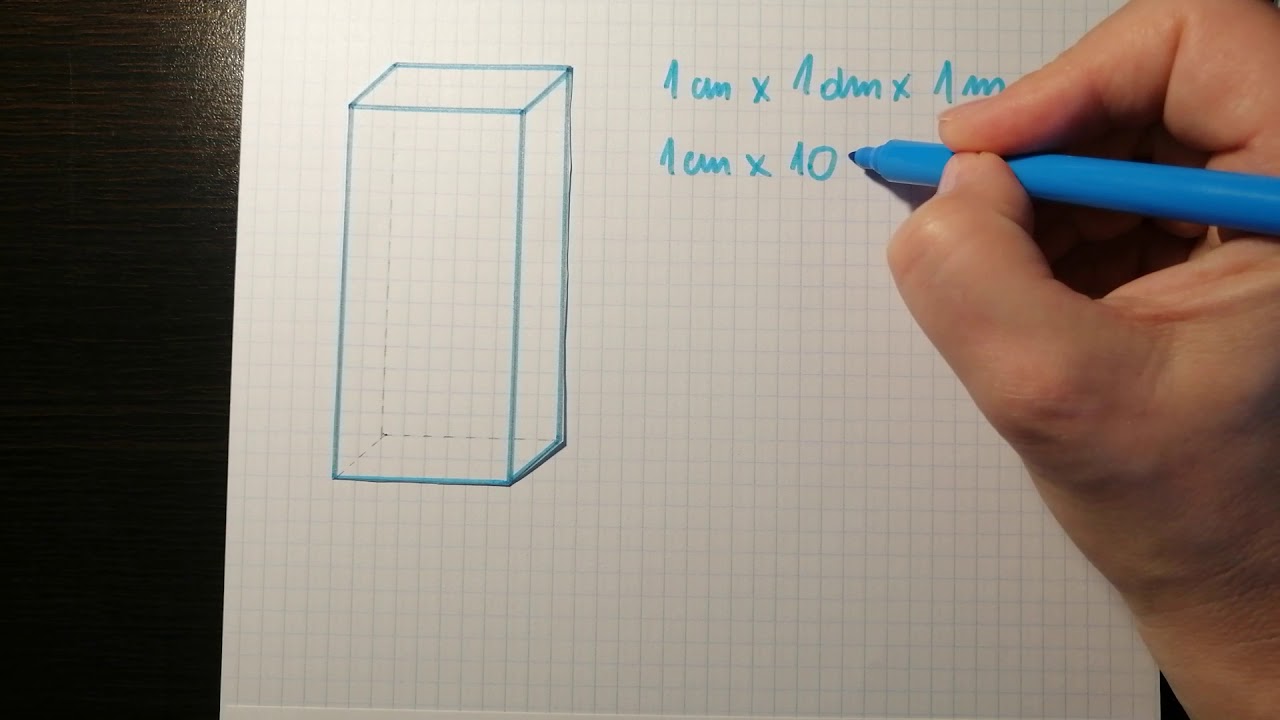 1 cm x 1 dm x 1 m
1 cm x 10